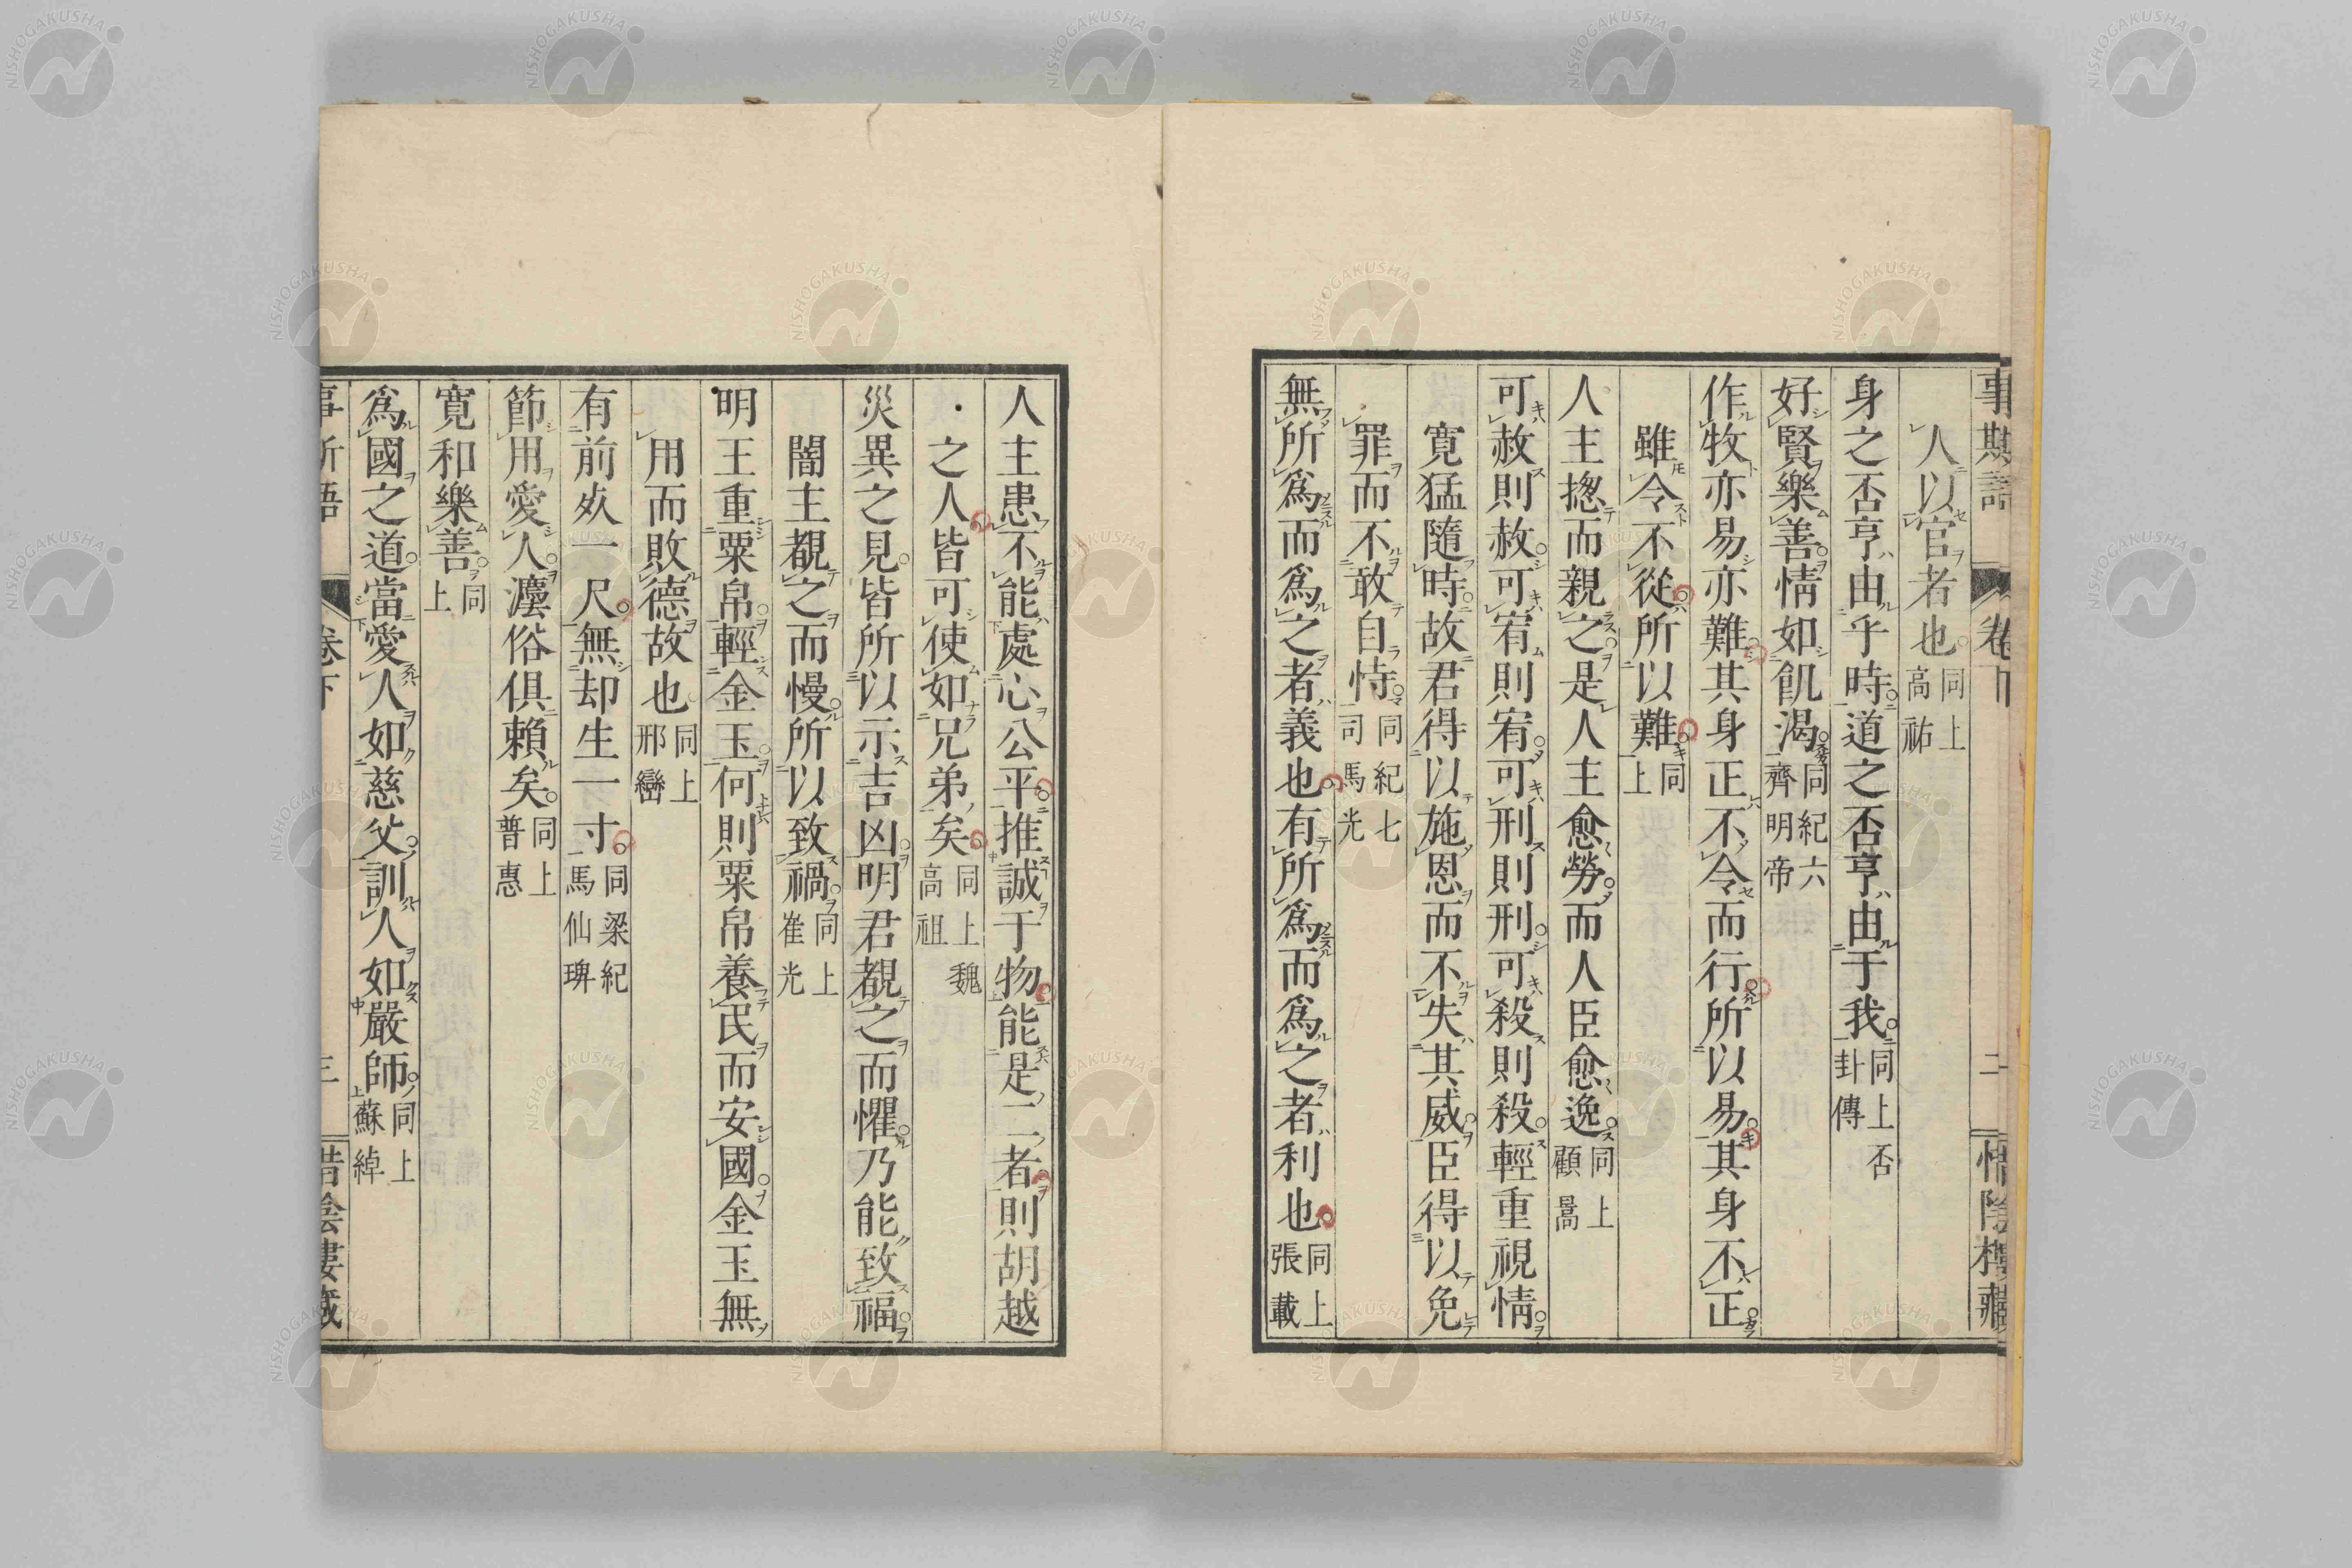 事斯語 卷下 二 惜陰樓藏
人以官者也同上高祐
身之否亨由乎時道之否亨由于我同上否卦傳
好賢樂善情如飢渴同紀六齊明帝
作牧亦易亦難其身正不令而行所以易其身不正
雖令不從所以難同上
人主揔而親之是人主愈勞而人臣愈逸同上顧暠
可赦則赦可宥則宥可刑則刑可殺則殺輕重視情
寛猛隨時故君得以施恩而不失其威臣得以免
罪而不敢自恃同紀七司馬光
無所爲而爲之者義也有所爲而爲之者利也同上張載
人主患不能處心公平推誠于物能是二者則胡越
之人皆可使如兄弟矣同上魏高祖
災異之見皆所以示吉凶明君覩之而懼乃能致福
闇主覩之而慢所以致禍同上崔光
明王重粟帛輕金玉何則粟帛養民而安國金玉無
用而敗德故也同上邢巒
有前㱐一尺無却生一寸同梁紀馬仙琕
節用愛人灋俗俱賴矣同上普惠
寛和樂善同上
爲國之道當愛人如慈父訓人如嚴師同上蘇綽
事斯語 卷下 三 惜陰樓藏
NISHOGAKUSHA